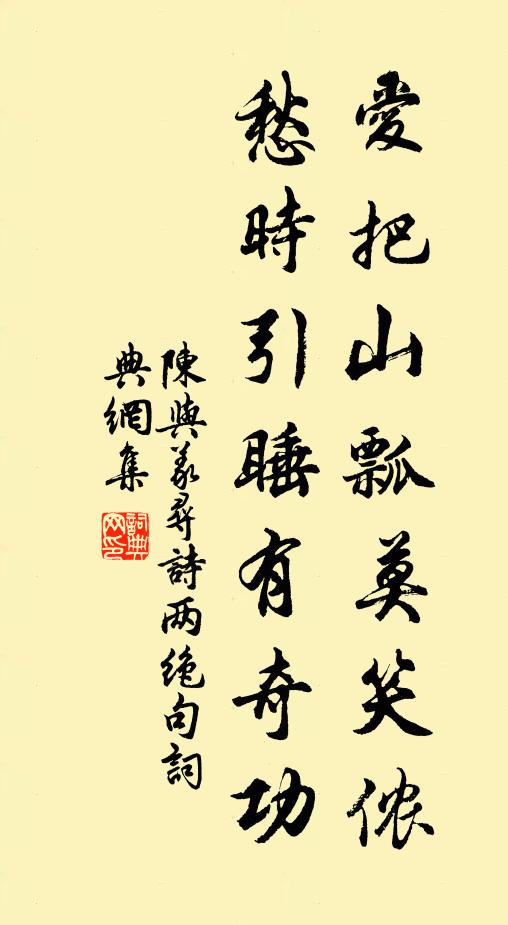 愛把山瓢莫笑儂
愁時引睡有奇功
陳與義尋詩两絶句詞
典網集
詞典網印